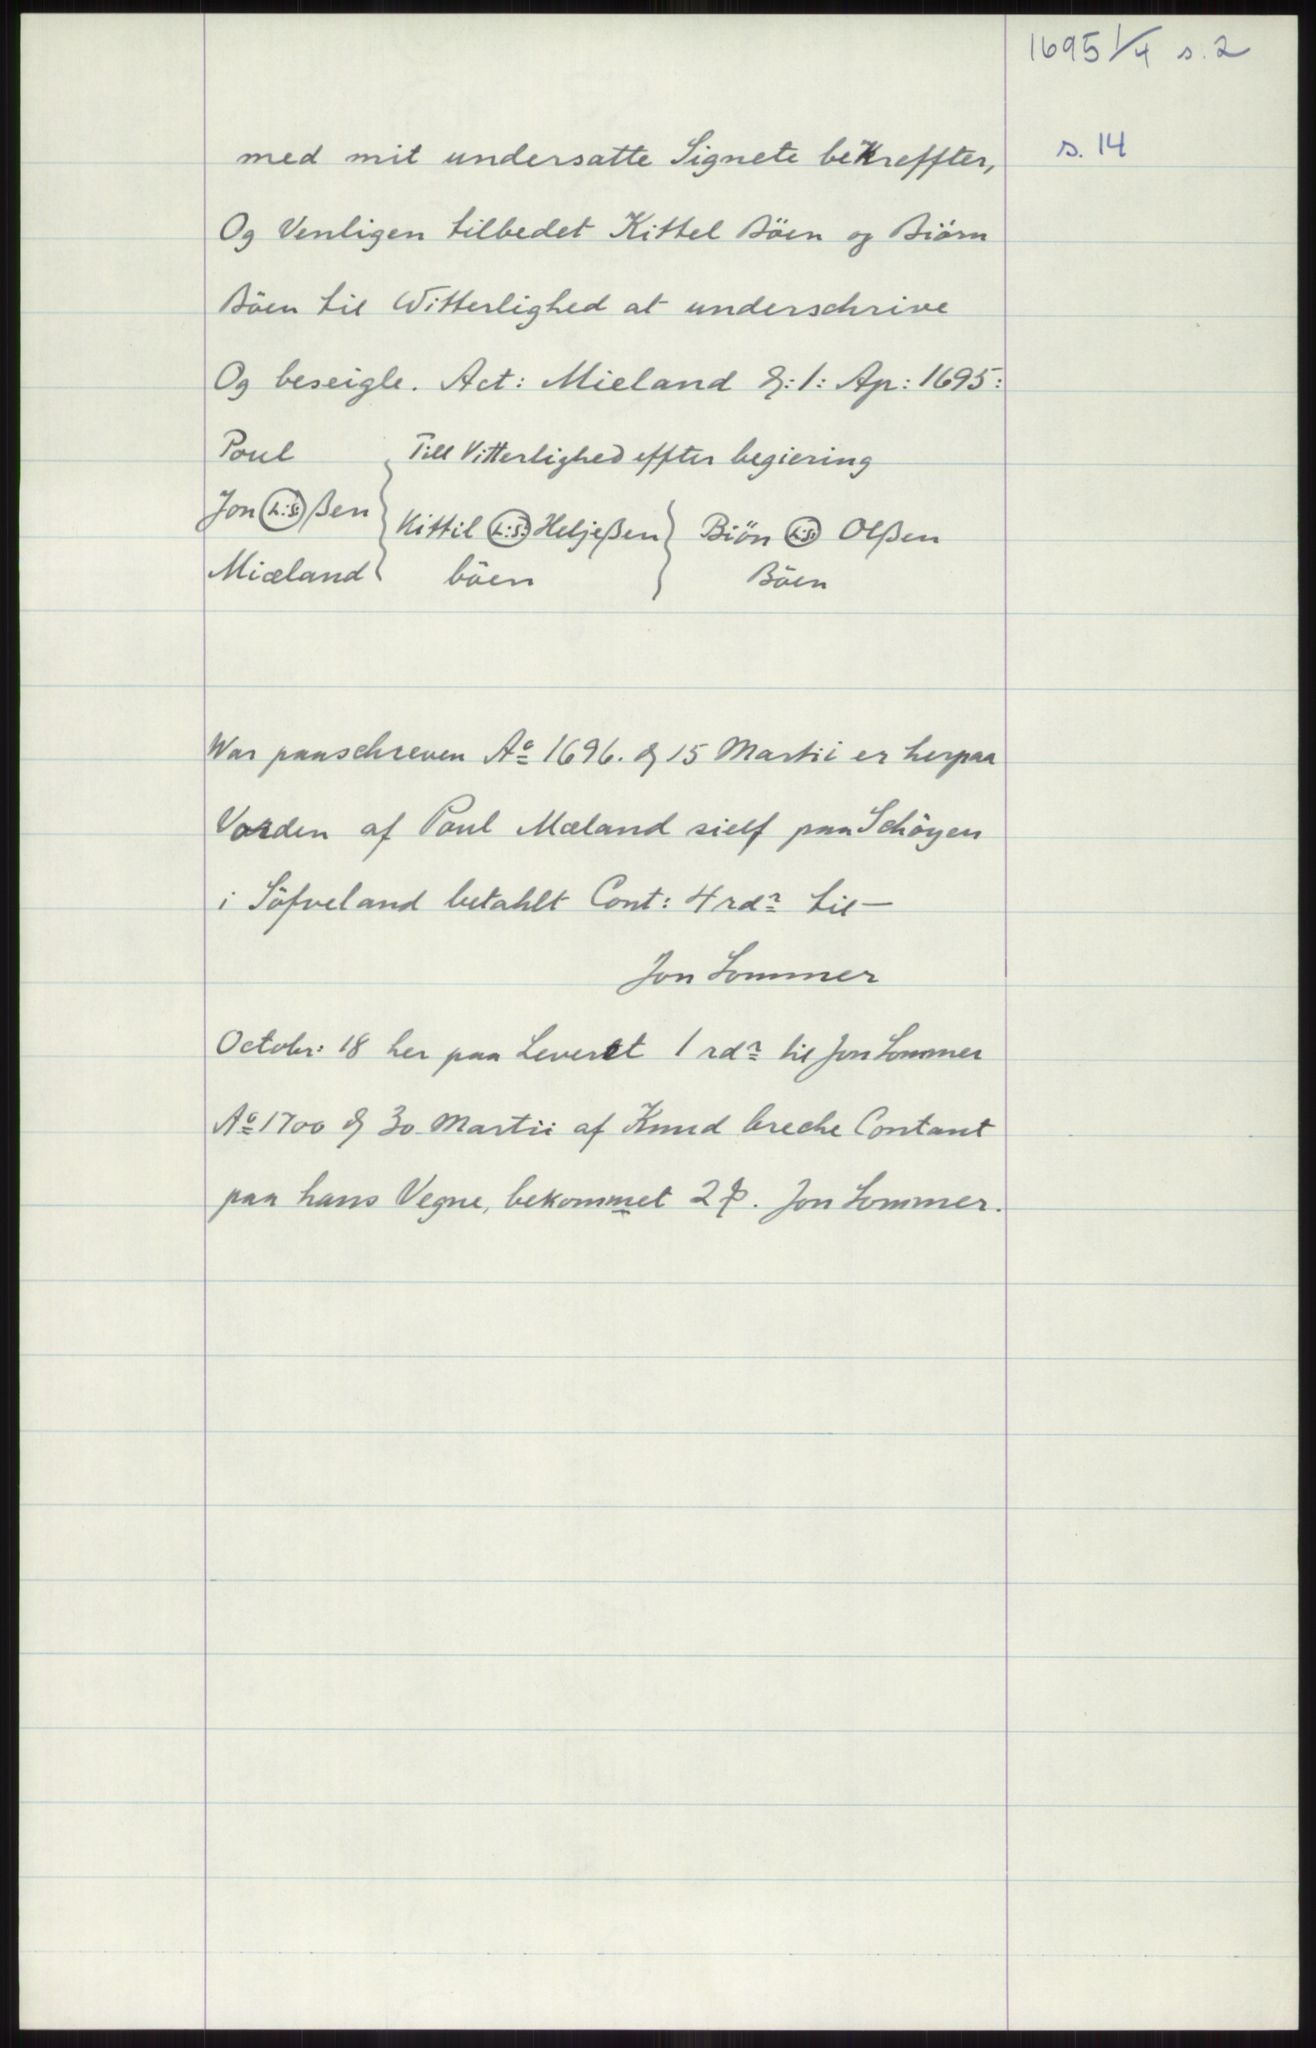 1695 1/4 s. 2
s. 14
med mit undersatte Signete bekreffter,
Og Venligen tilbedet Kittel Böen og Biörn
Böen til Witterlighed at underschrive
Og beseigle. Act: Mieland d: 1: Ap: 1695:
Poul
Jon (L:S:) ßen
Miæland
Till Vitterlighed effter begiering
Kittil (L:S:) Heljeßen
böen
Biön (L:S:) Olßen
Böen
War paaschreven Aº 1696. d 15 Martii er herpaa
Vorden af Poul Mæland sielf paa Schöyen
i Söfveland betahlt Cont: 4 rdr til —
Jon Sommer
Octobr: 18 her paa Leveret 1 rdr til Jon Sommer
Aº 1700 d 30 Martii af Knud breche Contant
paa hans Vegne, bekommet 2 . Jon Sommer.